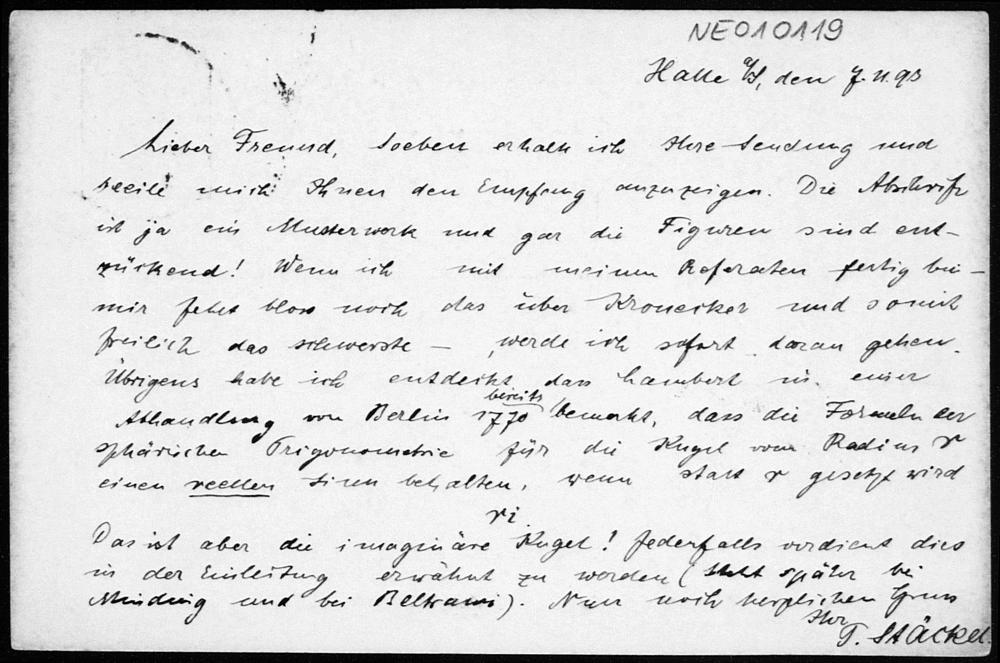 NE010119
Halle a/S, den 7. 11. 93
Lieber Freund, soeben erhalte ich Ihre Sendung und
beeile mich Ihnen den Empfang anzuzeigen. Die Abschrift
ist ja ein Musterwerk und gar die Figuren sind ent-
zückend! Wenn ich mit meinen Referaten fertig bin –
mir fehlt bloss noch das über Kronecker und somit
freilich das schwerste – werde ich sofort daran gehen.
Übrigens habe ich entdeckt, dass Lambert in einer
bereits
Abhandlung von Berlin 1770 bemerkt, dass die Formeln der
sphärischen Trigonometrie für die Kugel vom Radius r
einen reellen Sinn behalten, wenn statt r gesetzt wird
ri
Das ist aber die imaginäre Kugel! Jedenfalls verdient dies
in der Einleitung erwähnt zu werden ( später bei
Minding und bei Beltrami). Nun noch herzlichen Gruss
Ihr
P. Stäckel